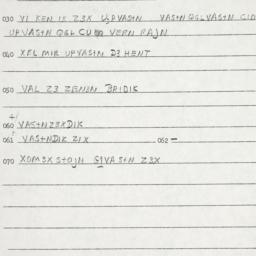 030 VI KEN IZ Z3X UPVASTN VASTN QGLVASTN CID
UPVASTN QGL CUM VERN RAJN
040 XFL MIR UPVASTN D3 HENT
050 VAL Z3 ZENEN BRIDIK
060 VASTNZ3XDIK
061 VASTNDIK ZIX 062 —
070 XOM3X STOJN GIVASTN Z3X